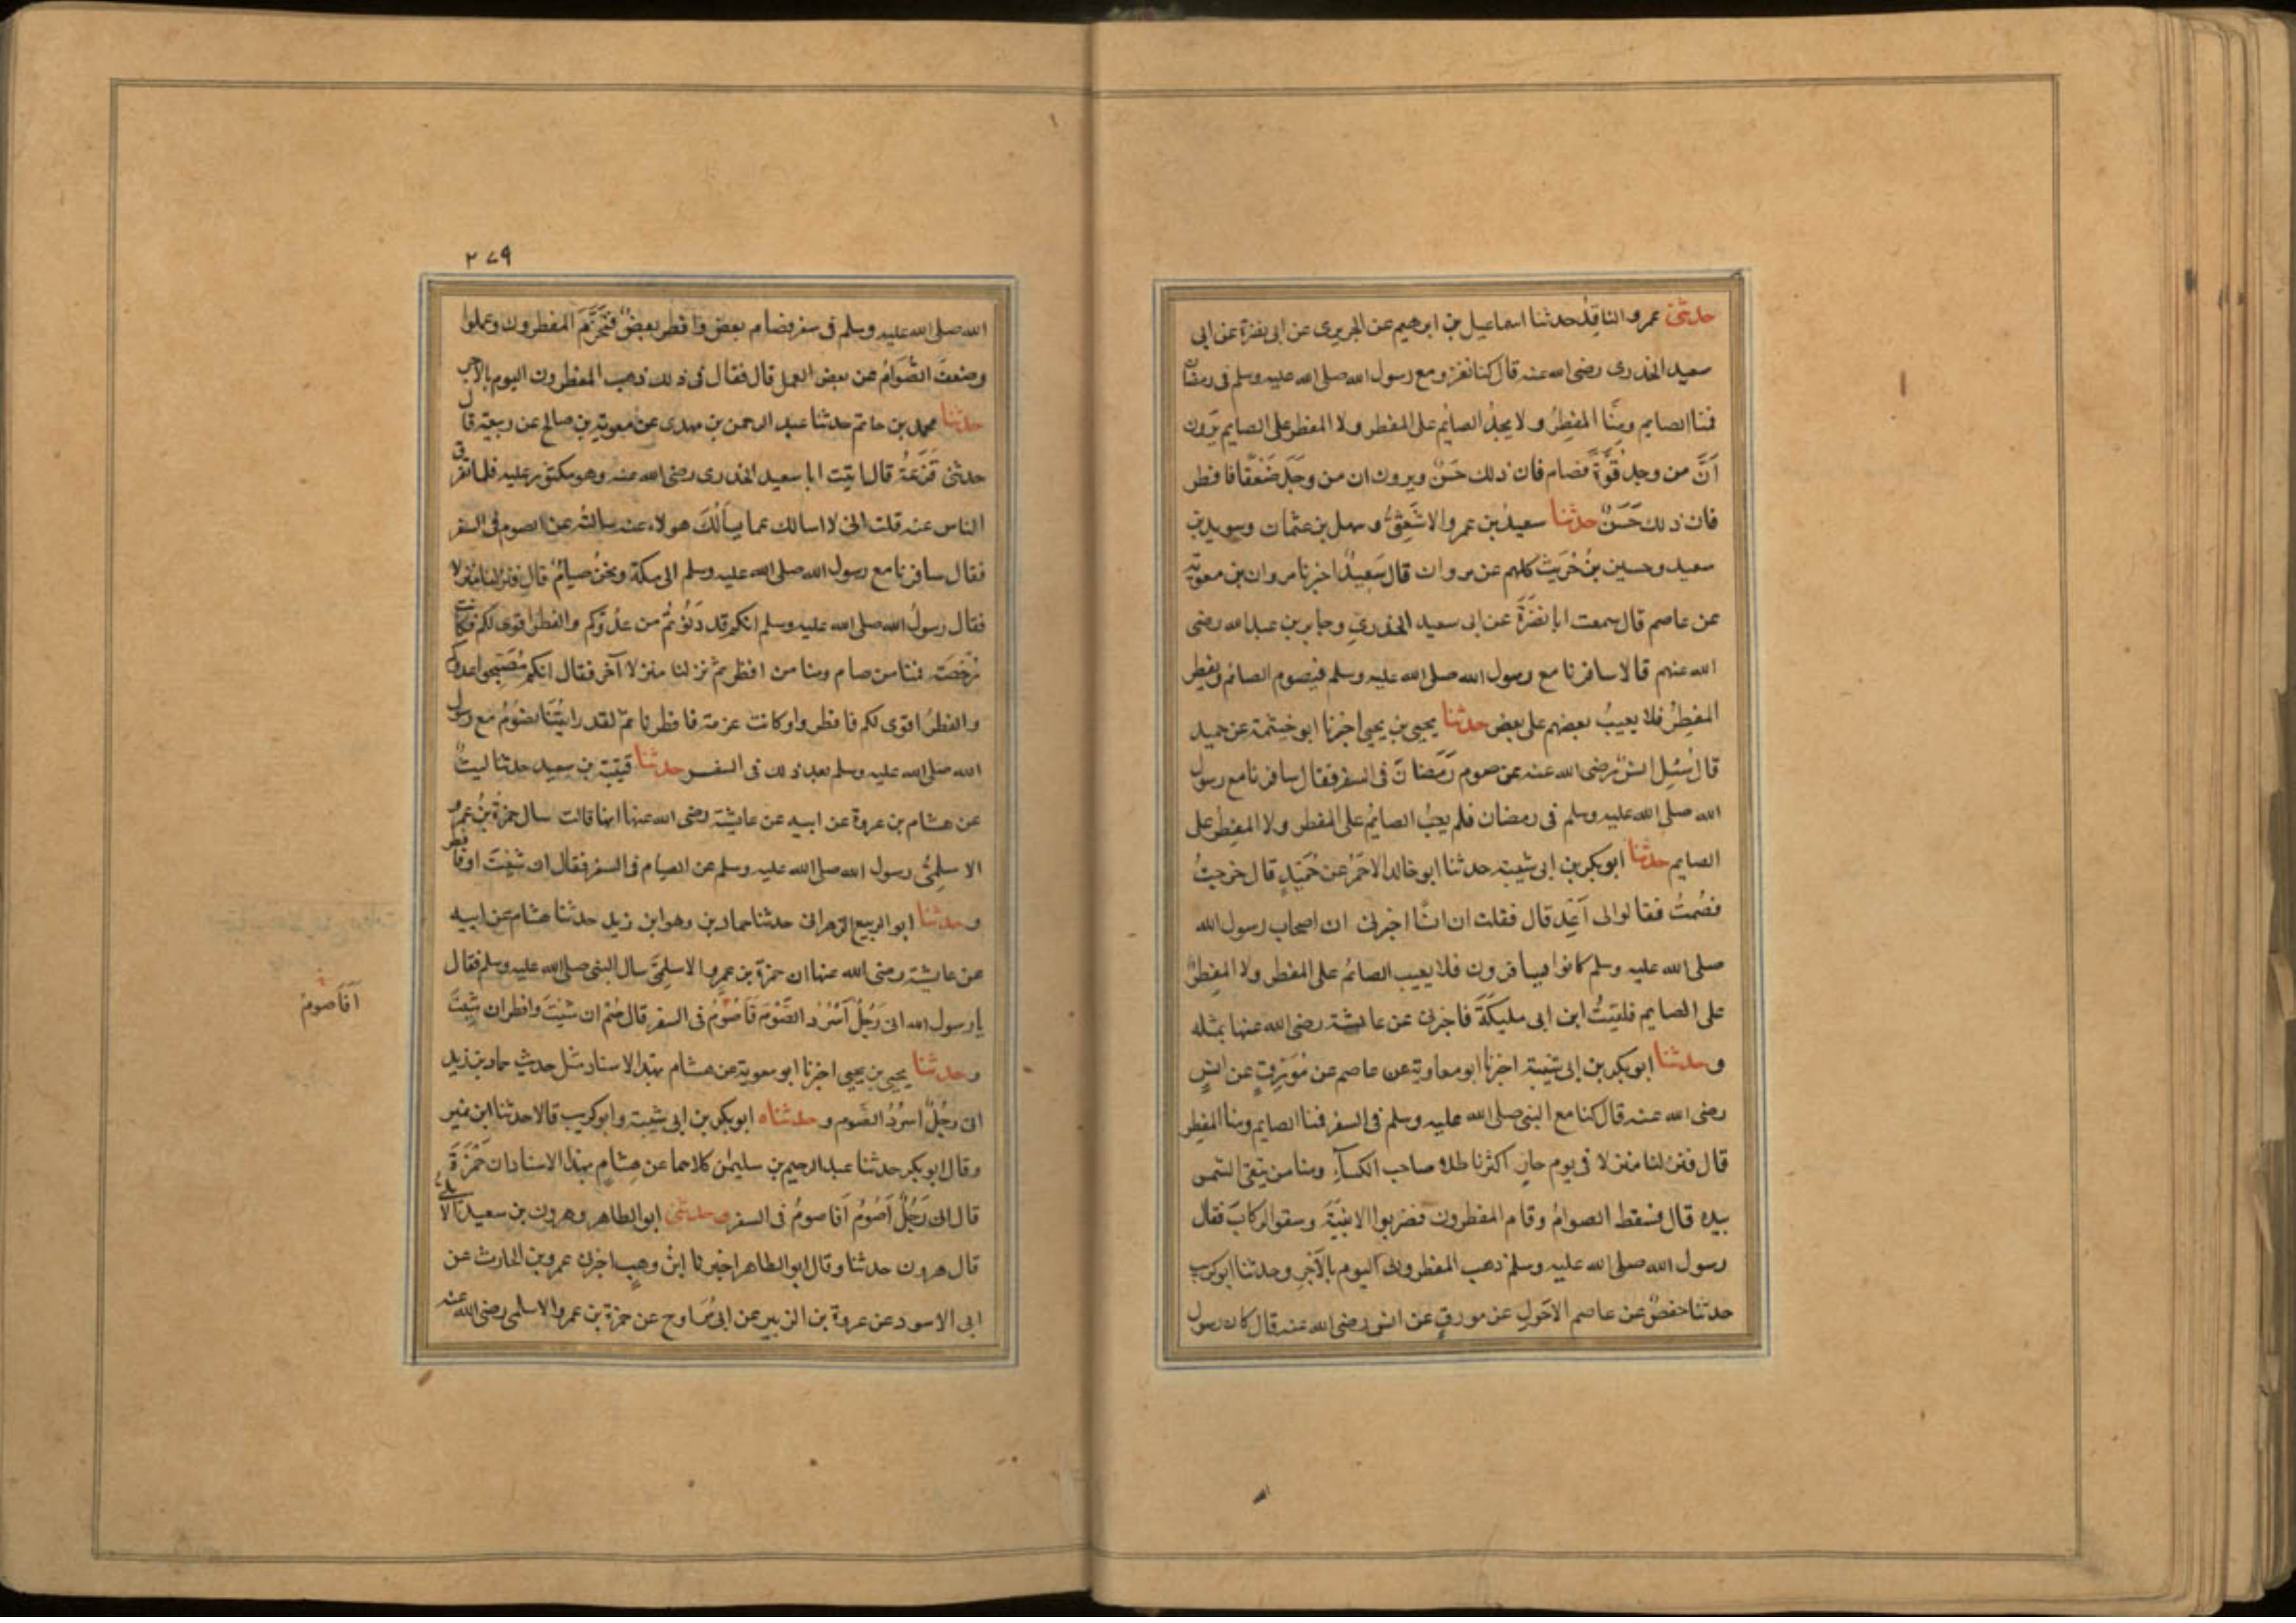 حدثنى عمرو الناقد حدثنا اسماعيل بن ابرهيم عن الجريرى عن ابى نضرة عن ابى
سعيد الخدرى رضى الله عنه قال كنا نغزو مع رسول الله صلى الله عليه وسلم فى رمضان
فمنا الصايم ومِنَّا المفطِرُ ولا يجدُ الصايمُ على المفطر ولا المفطر على الصايم يَرَون
اَنَّ من وجد قُوَّةً فصام فان ذلك حَسَنٌ ويرون ان من وَجَدَ ضَعْفًا فافطر
فان ذلك حَسَنٌ حدثنا سعيدُ بن عمرو الاشعثىُّ وسهل بن عثمان وسويد بن
سعيد وحسين بنُ حُرَيث كلهم عن مروان قال سَعِيدٌ اخبرنا مروان بن معوية
عن عاصم قال سمعت ابا نضرَةَ عن ابى سعيد الخدرىِ وجابر بن عبد الله رضى
الله عنهم قالا سافرنا مع رسول الله صلى الله عليه وسلم فيصوم الصائم ويفطر
المفطِرُ فلا يعيبُ بعضهم على بعض حدثنا يحيى بن يحيى اخبرنا ابو خيثمة عن حميد
قال سُئِل انسٌ رضى الله عنه عن صوم رَمَضانَ فى السفر فقال سافرنا مع رسول
الله صلى الله عليه وسلم فى رمضان فلم يعِبُ الصايمُ على المفطر ولا المفطِرُ على
الصايم حدثنا ابو بكر بن ابى شيبة حدثنا ابو خالد الاحمَرُ عن حُمَيدٍ قال خرجتُ
فصُمتُ فقالوا لى اَعِد قال فقلت ان انسًا اخبرنى ان اصحاب رسول الله
صلى الله عليه وسلم كانوا يسافرون فلا يعيب الصائمُ على المفطر ولا المفِطرُ
على الصايم فلقيتُ ابن ابى مليكَةَ فاخبرنى عن عائشة رضى الله عنها بمثله
وحدثنا ابو بكر بن ابى شيبة اخبرنا ابو معاوية عن عاصم عن مُوَرِّقٍ عن انسٍ
رضى الله عنه قال كنا مع النبى صلى الله عليه وسلم فى السفر فمنا الصايم ومنا المفطر
قال فنزلنا منزلا فى يوم حارٍ اكثرنا ظلا صاحب الكساَءِ ومنا من يتقى الشمس
بيده قال فسقط الصوامُ وقام المفطرون فضربوا الابنِيَةَ وسقوا الركابَ فقال
رسول الله صلى الله عليه وسلم ذهب المفطرون اليوم بالآجرِ وحدثنا ابو كريب
حدثنا حفصٌ عن عاصم الاحَولِ عن مورقٍ عن انس رضى الله عنه قال كان رسول
٢٧٩
الله صلى الله عليه وسلم فى سفر فصام بعضٌ وافطر بعضٌ فتَحَزَّمَ المفطرون وعملوا
وضعفَ الصُّوَّامُ عن بعض العمل قال فقال فى ذلك ذهب المفطرون اليوم بالاجر
حدثنا محمد بن حاتم حدثنا عبد الرحمن بن مهدى عن معوية بن صالح عن ربيعة قال
حدثنى قَزَعَةُ قال اتيت ابا سعيد الخدرى رضى الله عنه وهو مكثور عليه فلما تفرق
الناس عنه قلت انى لا اسالك عما يسألُكَ هولاء عنه سالته عن الصوم فى السفر
فقال سافرنا مع رسول الله صلى الله عليه وسلم الى مكة ونحنُ صيامٌ قال فنزلنا منزلا
فقال رسولُ الله صلى الله عليه وسلم انكم قد دَنَوتُم من عدُوِّكم والفطر اقوى لكم فكانت
رُخصَة فمنا من صام ومنا من افطر ثم نزلنا منزلا آخر فقال انكم مُصَبّحوا عدوكم
والفطرُ اقوى لكم فافطروا وكانت عزمة فافطرنا ثم لقد رايتُنا نصومُ مع رسول
الله صلى الله عليه وسلم بعد ذلك فى السفر حدثنا قتيبة بن سعيد حدثنا ليثٌ
عن هشام بن عروة عن ابيه عن عايشة رضى الله عنها انها قالت سال حمزة بنُ عمرو
الاسلمِىُّ رسول الله صلى الله عليه وسلم عن الصيام فى السفر فقال ان شئتَ او فافطر
وحدثنا ابو الربيع الزهرانى حدثنا حماد بن وهو ابن زيد حدثنا هشام عن ابيه
عن عايشة رضى الله عنها ان حمزة بن عمرو الاسلمِىَّ سال النبى صلى الله عليه وسلم فقال
يا رسول الله انى رَجُلٌ اَسْرُدُ الصَّوْمَ فَاَصُوْمُ فى السفر قال صُم ان شئتَ وافطر ان شئتَ
اَفَاَصومُ
وحدثنا يحيى بن يحيى اخبرنا ابو معوية عن هشام بهذا الاسناد مثل حديث حماد بن زيد
انى رجُلٌ اسرُدُ الصَّوم وحدثناه ابو بكر بن ابى شيبة وابو كريب قالا حدثنا ابن نمير
وقال ابو بكر حدثنا عبد الرحيم بن سليمٰن كلاهما عن هِشامٍ بهذا الاسناد ان حَمْزَةَ
قال انى رَجُلٌ اَصُوْمُ اَفاصومُ فى السفر وحدثنى ابو الطاهر وهرون بن سعيد الايلى
قال هرون حدثنا وقال ابو الطاهر اخبرنا ابنُ وهبٍ اخبرنى عمرو بن الحارث عن
ابى الاسود عن عروة بن الزبير عن ابى مُرَاوح عن حمزة بن عمرو الاسلمى رضى الله عنه